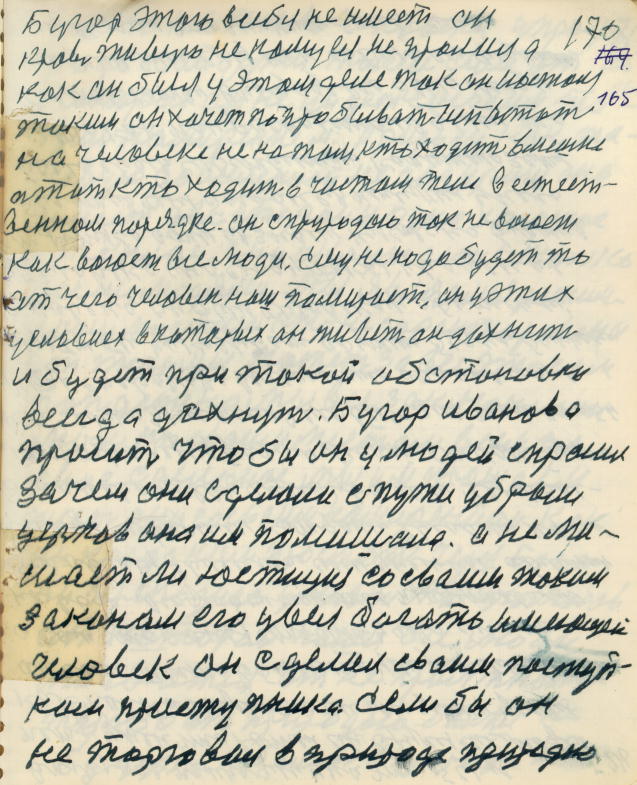 Бугор этого в себя не имеет он 170
кров живую не получел не пролил а 169
как он был у этом деле так он и остался 165
таким он хочет попробывать испытат
на человеке не на том кто ходит в мешке
а тот кто ходит в чистом теле в естест-
венном порядке. он с природаю так не воюет
как воюет все люди. ему не надо будет то
от чего человек наш помирает, он у этих
условиех в которых он живет он дохнит
и будет при такой обстановки
всегда дохнут. Бугор Иванова
просит чтобы он у людей спросил
зачем они сделали с пути убрали
церков она им помишала. а не ми-
шает ли юстиция со своим таким
законом его увел богать имеющей
человек он сделал своим поступ-
ком приступника. Если бы он
не торговал в природе природаю